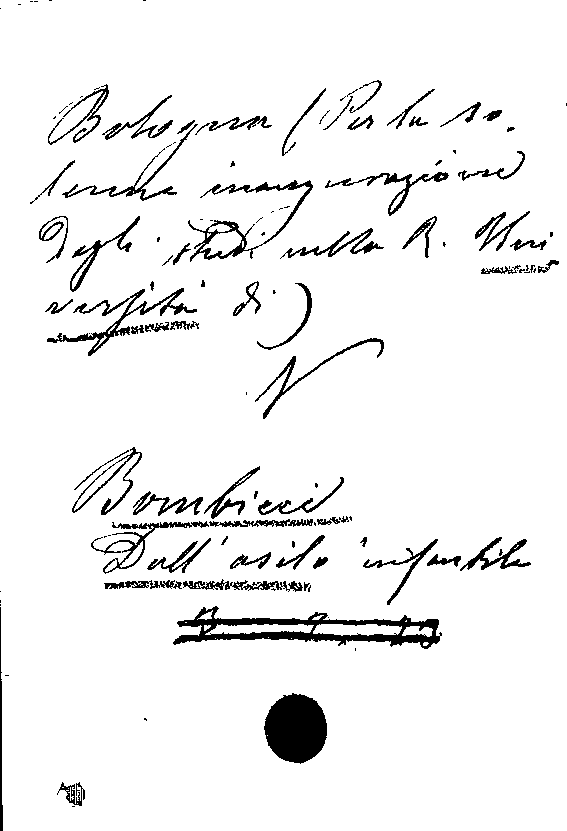 Bologna (Per la so.
lenne inaugurazione
degli studi nella R. Uni
versità di)
V
Bombicci
Dall'asilo infantile